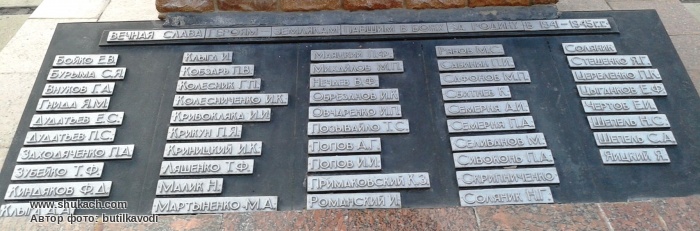 ВЕЧНАЯ СЛАВА ГЕРОЯМ ЗЕМЛЯКАМ ПАВШИМ В БОЯХ ЗА РОДИНУ В 1941-1945 Г.Г.
БОЙКО Е.В.
БУРЫМА С.Я.
ВНУКОВ Г.А.
ГНИДА Я.М.
ДУДАТЬЕВ Е.С.
ДУДАТЬЕВ П.С.
ЗАХОДЯЧЕНКО П.А.
ЗУБЕЙКО Т.Ф.
КИНДЯКОВ Ф.Д.
КЛЫГА Д.А.
КЛЫГА И.
КОБЗАРЬ П.В.
КОЛЕСНИК Г.П.
КОЛЕСНИЧЕНКО И.К.
КРИВОКЛЯКА И.И.
КРИКУН П.Я.
КРИНИЦКИЙ И.К.
ЛЯШЕНКО Т.Ф.
МАЛИК Н.
МАРТЫНЕНКО М.А.
П.Ф.
МИХАЙЛОВ М.П.
НЕЧАЕВ В.Ф.
ОБРЕЗАНОВ И.К.
ОВЧАРЕНКО И.П.
ПОЗЫВАЙЛО Т.С.
ПОПОВ А.Г.
ПОПОВ И.И.
ПРИМАКОВСКИЙ К.З.
РОМАНСКИЙ И.
М.С.
П.И.
САФОНОВ М.П.
К.
СЕМЕРНЯ А.И.
СЕМЕРНЯ П.А.
СЕЛИВАНОВ М.
СИВОКОНЬ П.А.
СКРИПНИЧЕНКО
СОЛЯНИК Н.Г.
СОЛЯНИК
СТЕШЕНКО Я.Г.
ЦЕРЕПЕНКО П.К.
ЦЫГАНКОВ Е.Ф.
ЧЕРТОВ Е.И.
ШЕПЕЛЬ Н.С.
ШЕПЕЛЬ С.Д.
ЯНИЦКИЙ Я.
www.shukach.com
Автор фото: butilkavodi